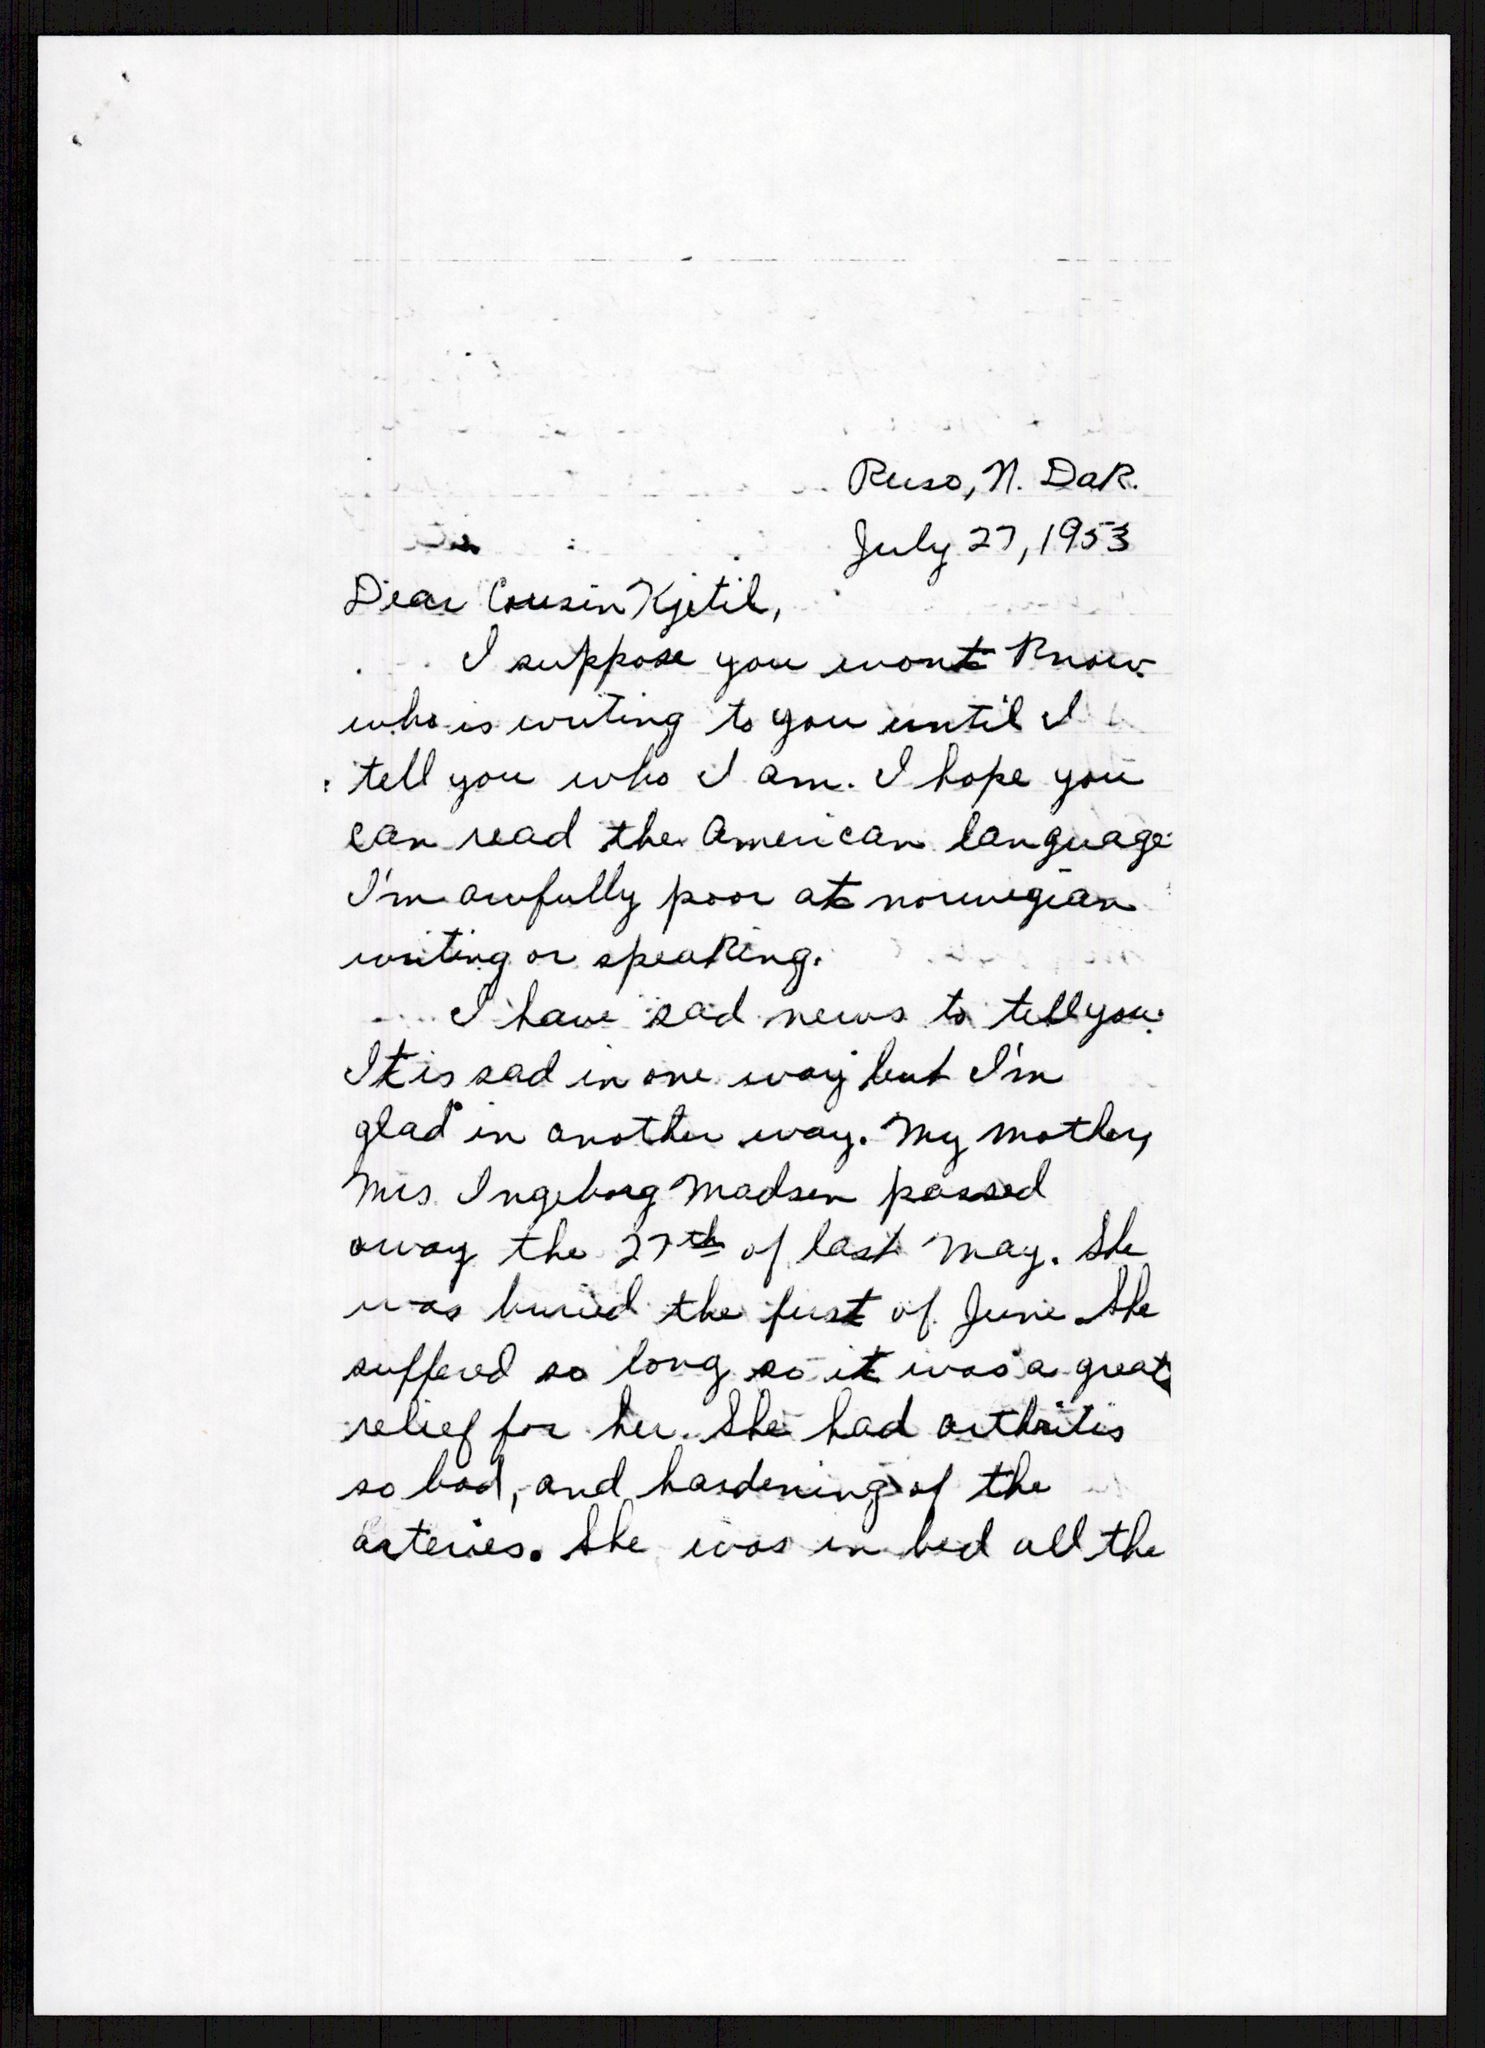 Ruso, N. Dak.
July 27, 1953
Dear Cousin Kjetil,
I suppose you wont know
who is writing to you until I
tell you who I am. I hope you
can read the American language
I'm awfully poor at norwegian
writing or speaking.
I have sad news to tell you.
It is sad in one way but I'm
glad in another way. My mother,
Mrs. Ingeborg Madsen passed
away the 27th of last May. She
was buried the first of June. She
suffered so long so it was a great
relief for her. She had arthritis
so bad, and hardening of the
arteries. She was in bed all the